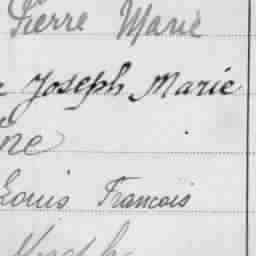 Pierre Marie
Joseph Marie
ne
Louis François